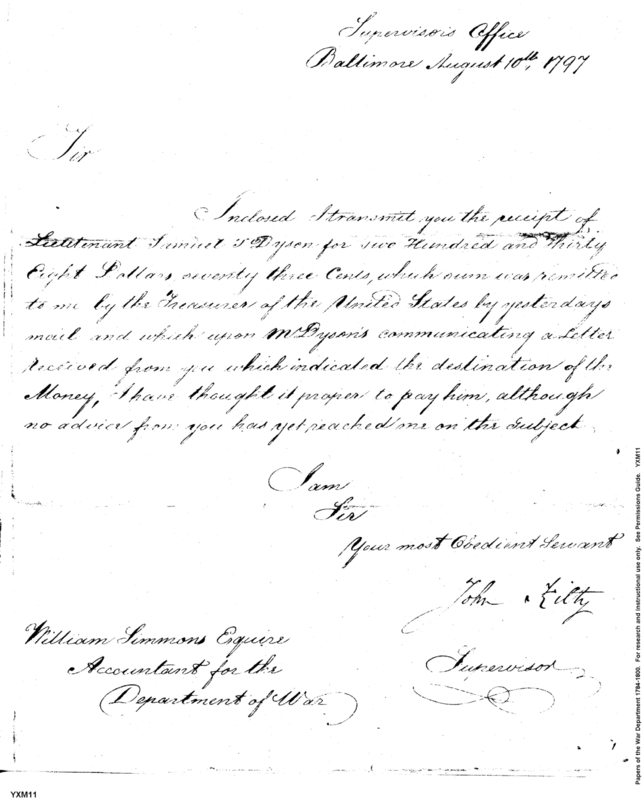 Supervisors Office
Baltimore August 10th, 1797
Sir
Inclosed I transmit you the receipt of
Lieutenant Samuel T Dyson for two Hundred and thirty
Eight Dollars twenty three Cents, which sum was remitted
to me by the Treasurer of the United States by yesterdays
mail and which upon Mr Dysons communicating a Letter
received from you which indicated the destination of the
Money, I have thought it proper to pay him, although
no advice from you has yet reached me on the Subject
I am
Sir
Your most Obedient Servant
John Kilty
William Simmons Esquire
Supervisor
Accountant for the
Department of War
Papers of the War Department 1784-1800. For research and instructional use only. See Permissions Guide. YXM11
YXM11